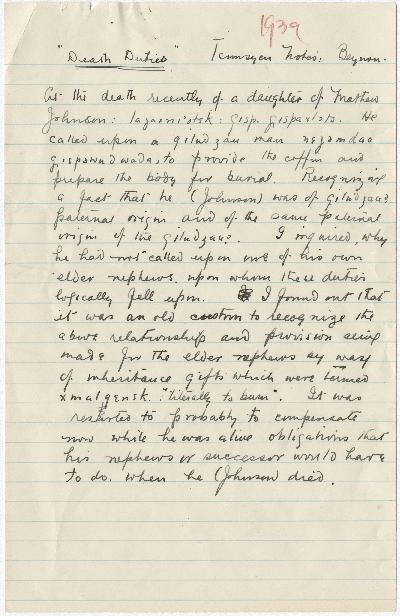 1939
"Death Duties" Tsimsyen Notes. Beynon.
At the death recently of a daughter of Mathew
Johnson: gisp. He
called upon a giludzau man
to provide the coffin and
prepare the body for burial. Recognizing
a fact that he (Johnson) was of giludzau?
paternal origin and of the same paternal
origin of the giludzau?. I inquired, why
he had not called upon one of his own
elder nephews, upon whom these duties
logically fell upon. I found out that
it was an old custom to recognize the
above relationship and provision being
made for the elder nephews by way
of inheritance gifts which were termed
xmalgensk. "literally to burn". It was
resorted to probably to compensate
now while he was alive obligations that
his nephews or successor would have
to do. when he (Johnson) died.